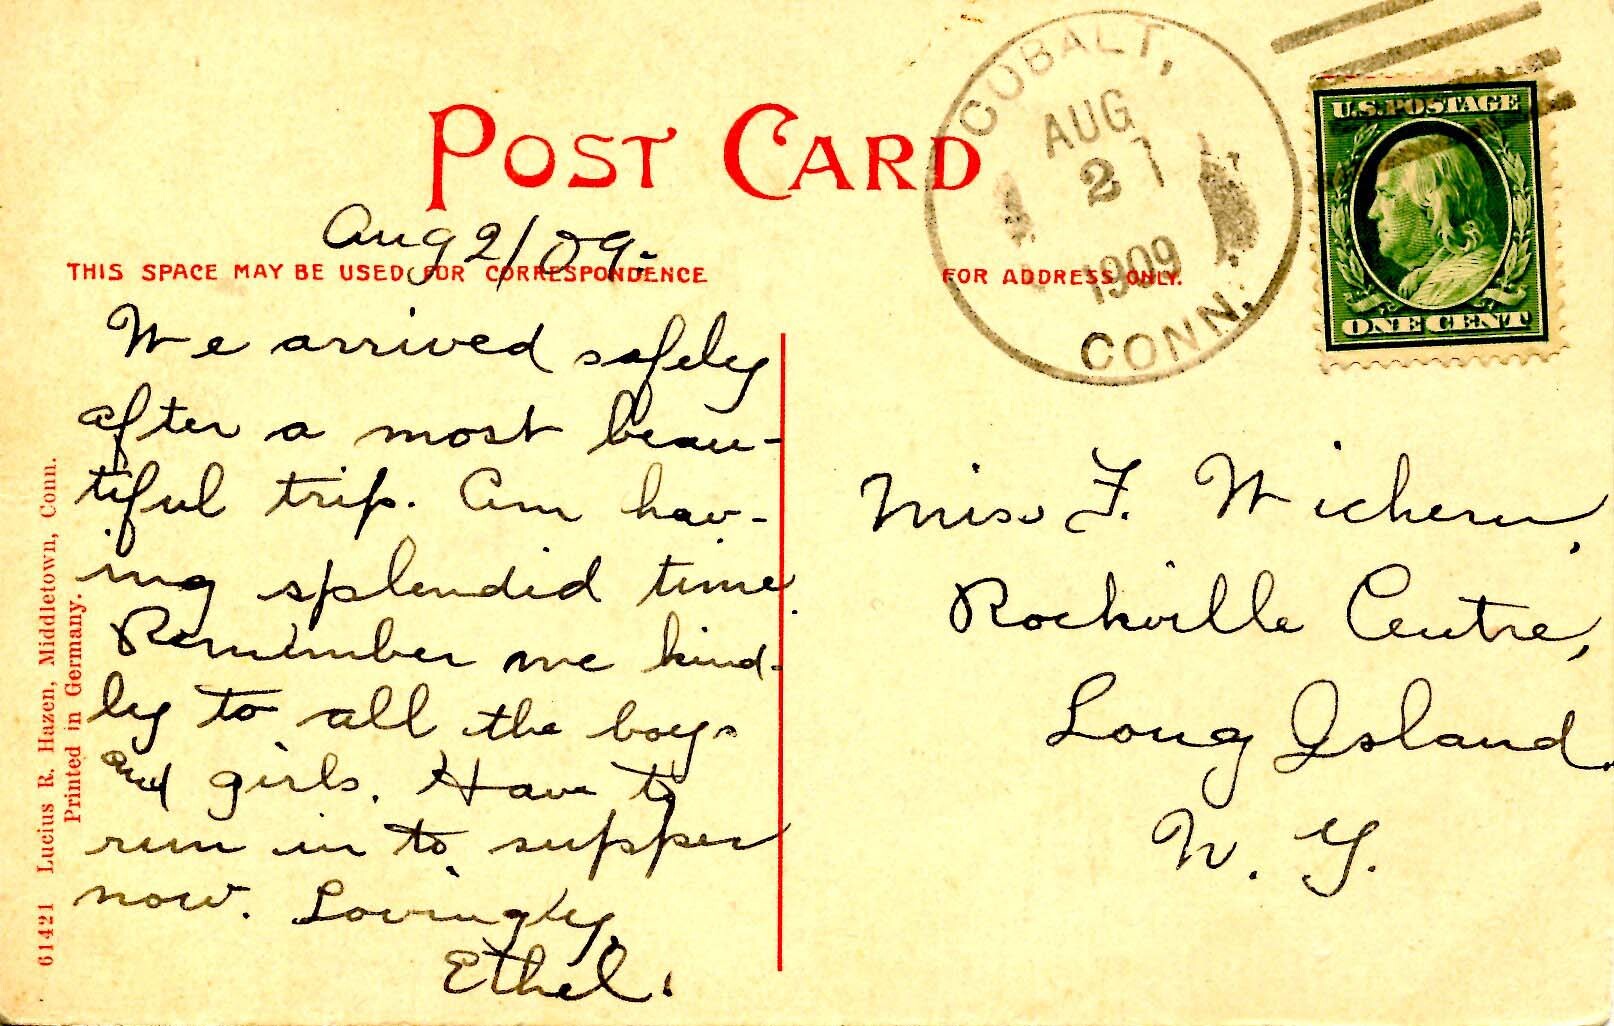 POST CARD
COBALT,
AUG
2
1909
CONN.
U.S. POSTAGE
ONE CENT
Aug 2/09.
THIS SPACE MAY BE USED FOR CORRESPONDENCE
FOR ADDRESS ONLY.
We arrived safely
after a most beau-
tiful trip. Am hav-
ing splendid time.
Remember me kind-
ly to all the boys
and girls. Have to
run in to supper
now. Lovingly,
Ethel.
Miss F. Wichern,
Rockville Centre,
Long Island.
N. Y.
61421 Lucius R. Hazen, Middletown, Conn.
Printed in Germany.